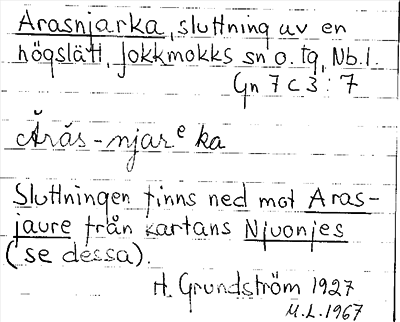 Arasnjarka, sluttning av en
högslätt, Jokkmokks sn o. tg, Nb. l.
Gn 7 C 3 : 7
Ărás-njarᵉka
Sluttningen finns ned mot Aras-
jaure från kartans Njuonjes
(se dessa).
H. Grundström 1927
M.L. 1967